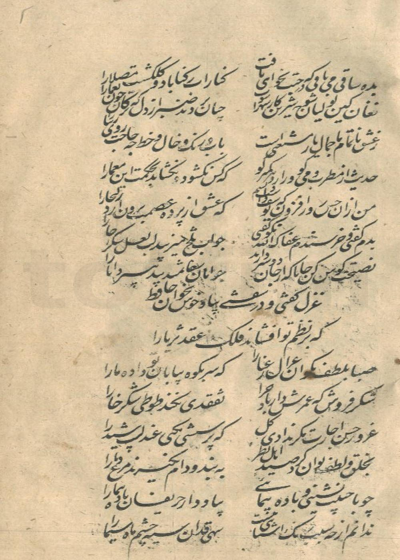 بده ساقی می باقی که در جنت نخواهی یافت کنار آب رکناباد و گلگشت مصلا را
فغان کین لولیان شوخ شیرین کار شهر آشوب چنان بردند صبر از دل که ترکان خوان یغما را
ز عشق ناتمام ما جمال یار مستغنی است بآب و رنگ و خال و خط چه حاجت روی زیبا را
حدیث از مطرب و می گو و راز دهر کمتر جو که کس نگشود و نگشاید بحکمت این معما را
من از آن حسن روز افزون که یوسف داشت دانستم که عشق از پرده عصمت برون آرد زلیخا را
بدم گفتی و خرسندم عفاک الله نکو گفتی جواب تلخ میزیبد لب لعل شکرخا را
نصیحت گوش کن جانا که از جان دوست تر دارند جوانان سعادتمند پند پیر دانا را
غزل گفتی و در سفتی بیا و خوش بخوان حافظ
که بر نظم تو افشاند فلک عقد ثریا را
صبا بلطف بگو آن غزال رعنا را که سر بکوه و بیابان تو داده ما را
شکر فروش که عمرش دراز باد چرا تفقدی نکند طوطی شکرخا را
غرور حسن اجازت مگر نداد ای گل که پرسشی نکنی عندلیب شیدا را
بخلق و لطف توان کرد صید اهل نظر به بند و دام نگیرند مرغ دانا را
چو با حبیب نشینی و باده پیمایی بیاد آر حریفان باد پیما را
ندانم از چه سبب رنگ آشنایی نیست سهی قدان سیه چشم ماه سیما را